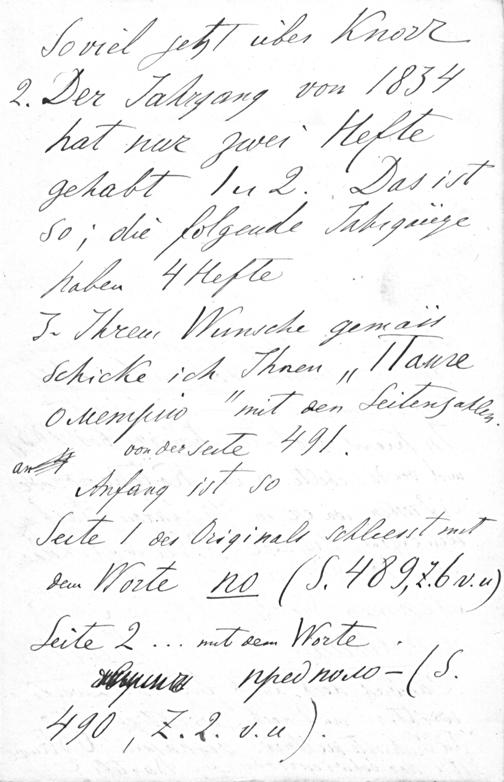 Soviel jetzt über Knorr
2. Der Jahrgang von 1834
hat nur zwei Hefte
gehabt 1 u 2. Das ist
so; die folgende Jahrgänge
haben 4 Hefte
3. Ihrem Wunsche gemäss
schicke ich Ihnen „
" mit den Seitenzahlen.
von der Seite 491.
Anfang ist so
Seite 1 des Originals schliesst mit
dem Worte по (S. 489, Z. 6 v. u)
Seite 2 ... mit dem Worte
предполо- (S.
490, Z. 2. v. u).